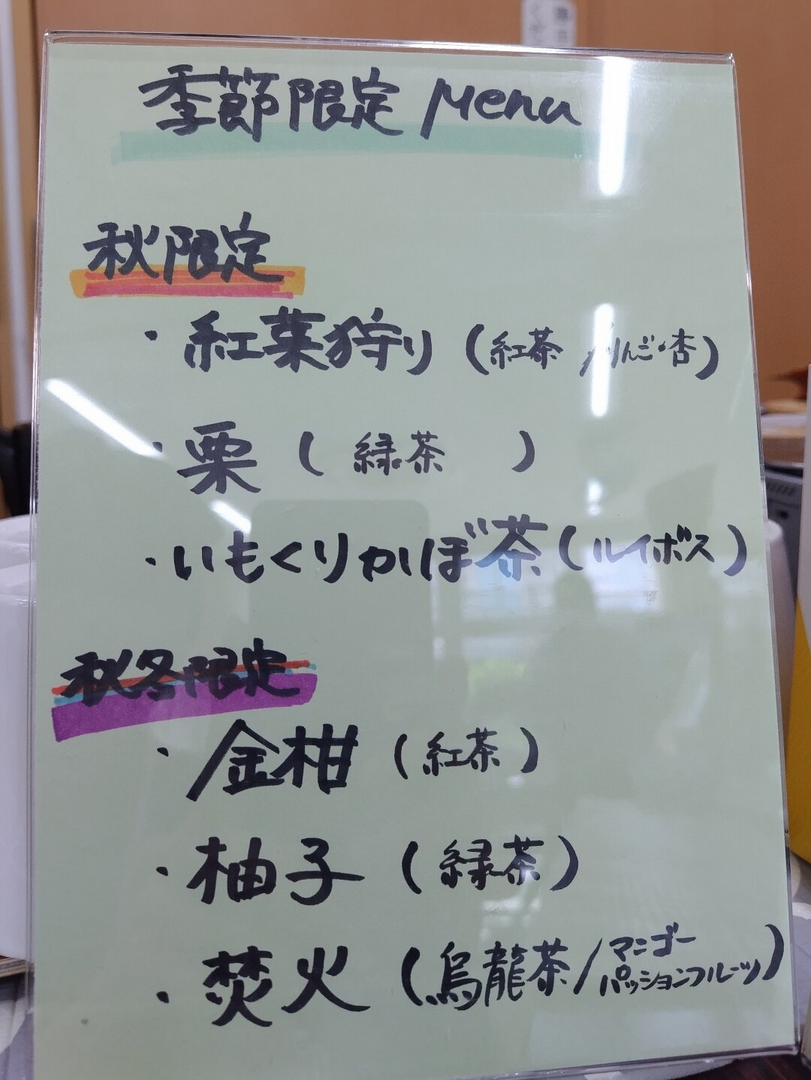 季節限定 Menu
秋限定
・紅葉狩り(紅茶/りんご・杏)
・栗(緑茶)
・いもくりかぼ茶(ルイボス)
秋冬限定
・金柑(紅茶)
・柚子(緑茶)
・焚火(烏龍茶/マンゴー
パッションフルーツ)